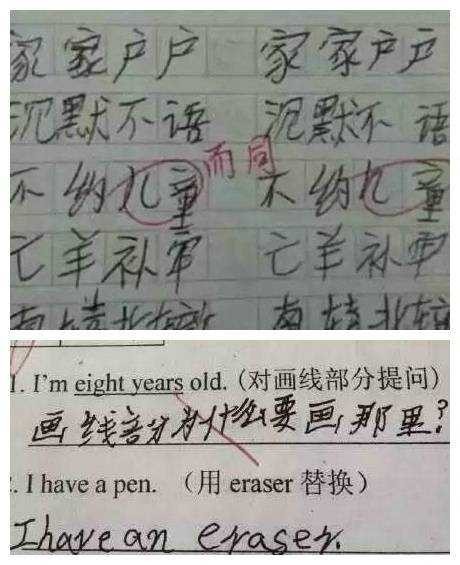 家家户户 家家户户
沉默不语 沉默不语
不约儿童 而同 不约儿童
亡羊补牢 亡羊补牢
南 北 南 北
1. I'm eight years old. (对画线部分提问)
画线部分为什么要画那里?
. I have a pen. （用 eraser 替换）
I have an eraser.